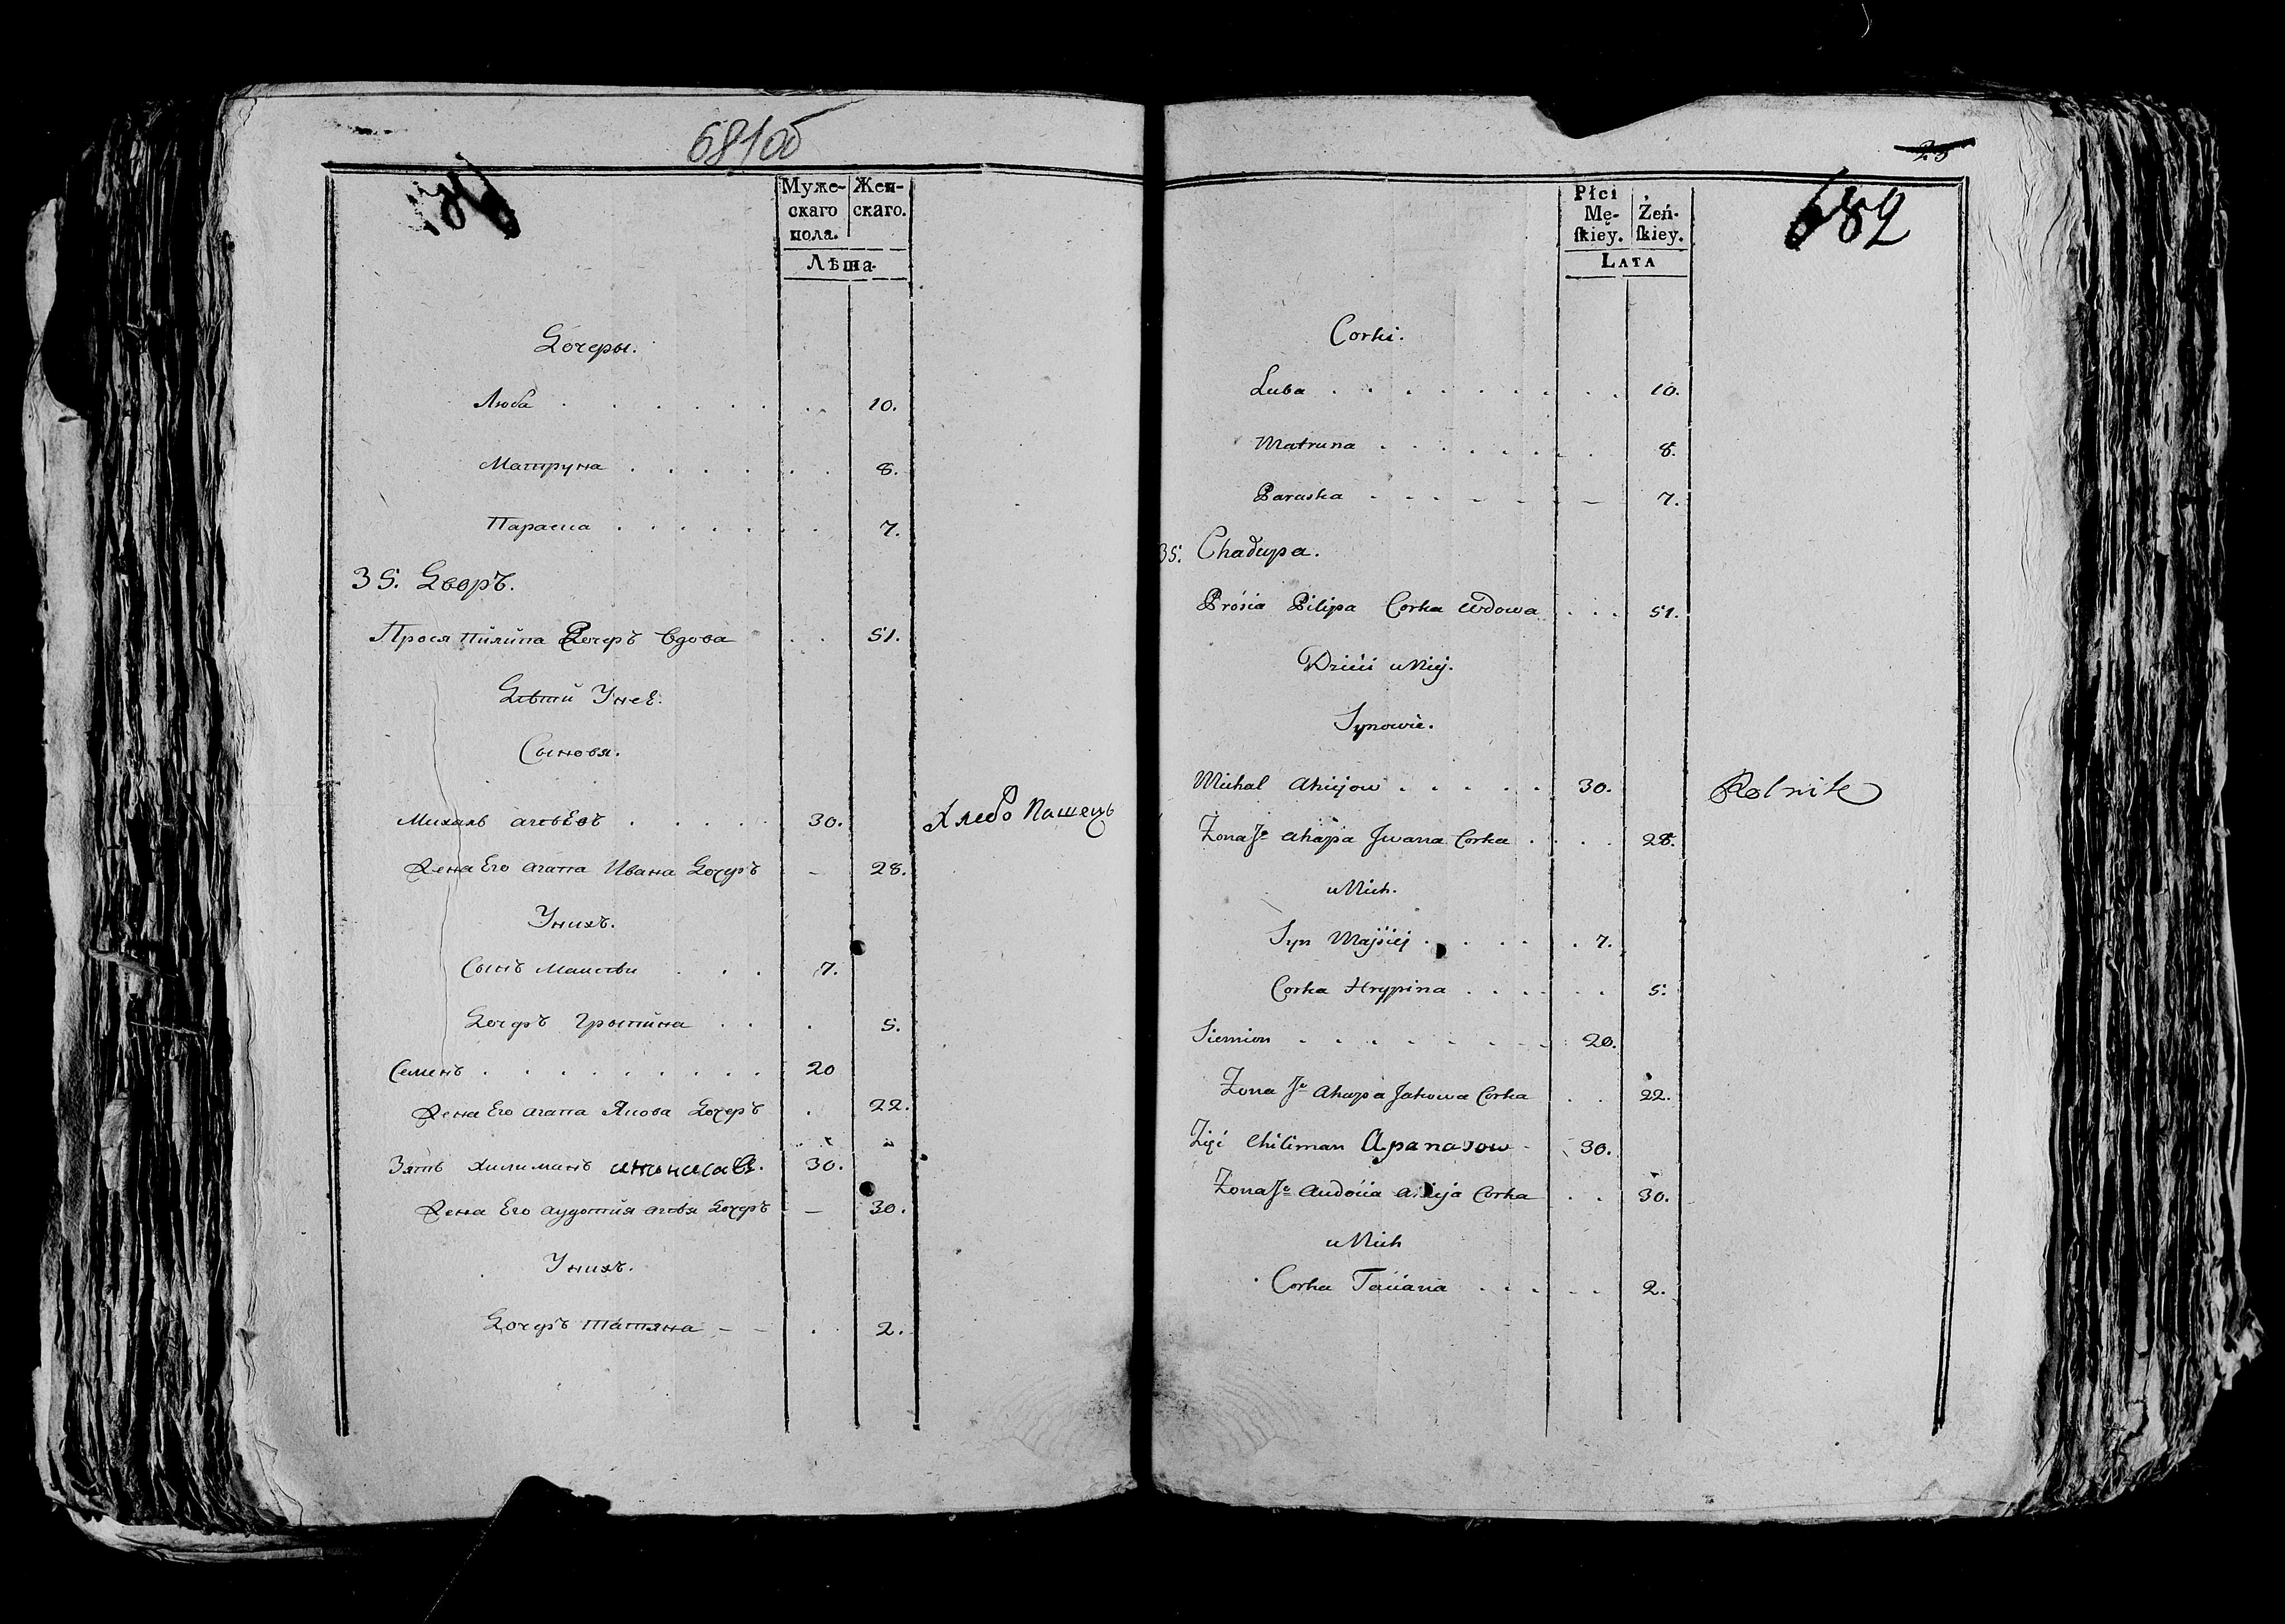 681об
Муже- Жен-
скаго скаго.
пола.
Лѣта.
Дочеры.
Люба . . . . . . . . 10.
Матруна . . . . . . 8.
Параска . . . . . . 7.
35. Дворъ.
Прося Пилипа Дочеръ Вдова . . 51.
Дѣти Унеѣ.
Сыновя.
Михалъ агѣевъ . . . . 30. Хлебопашецъ
Жена Его агапа Ивана Дочеръ - 28.
Унихъ.
Сынъ Маисѣи . . . 7.
Дочеръ Грыпина . . . 5.
Семенъ . . . . . . . . 20
Жена Его агапа Якова Дочеръ . 22.
Зять Хилиманъ 30.
Жена Его аудотия агѣя Дочеръ - 30.
Унихъ.
Дочеръ татяна - - . 2.
25
682
Płci
Mę- Żeń-
ſkiey. ſkiey.
LATA
Corki.
Luba . . . . . . . . 10.
Matruna . . . . . . . 8.
Paraska - - - - - - - 7.
35. Chałupa.
Prosia Pilipa Corka wdowa . . . 51.
Dzieci u Niej.
Synowie.
Michal Ahiejow . . . . . 30. Rolnik
Zona Je Ahapa Jwana Corka . . . . 28.
u Nich.
Syn Majsiej . . . . . 7.
Corka Hrypina . . . . . . 5.
Siemion - - - - - - - 20.
Zona Je Ahapa Jakowa Corka . . 22.
Zięć Chiliman Apanasow - 30.
Zona Je Audocia Ahieja Corka . . 30.
u Nich
Corka Taciana . . . . . 2.